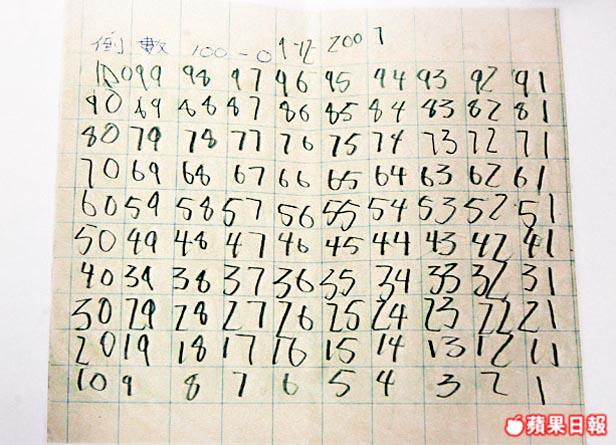 倒數 100-0 9-12 2007
100 99 98 97 96 95 94 93 92 91
90 89 88 87 86 85 84 83 82 81
80 79 78 77 76 75 74 73 72 71
70 69 68 67 66 65 64 63 62 61
60 59 58 57 56 55 54 53 52 51
50 49 48 47 46 45 44 43 42 41
40 39 38 37 36 35 34 33 32 31
30 29 28 27 26 25 24 23 22 21
20 19 18 17 16 15 14 13 12 11
10 9 8 7 6 5 4 3 2 1
蘋果日報